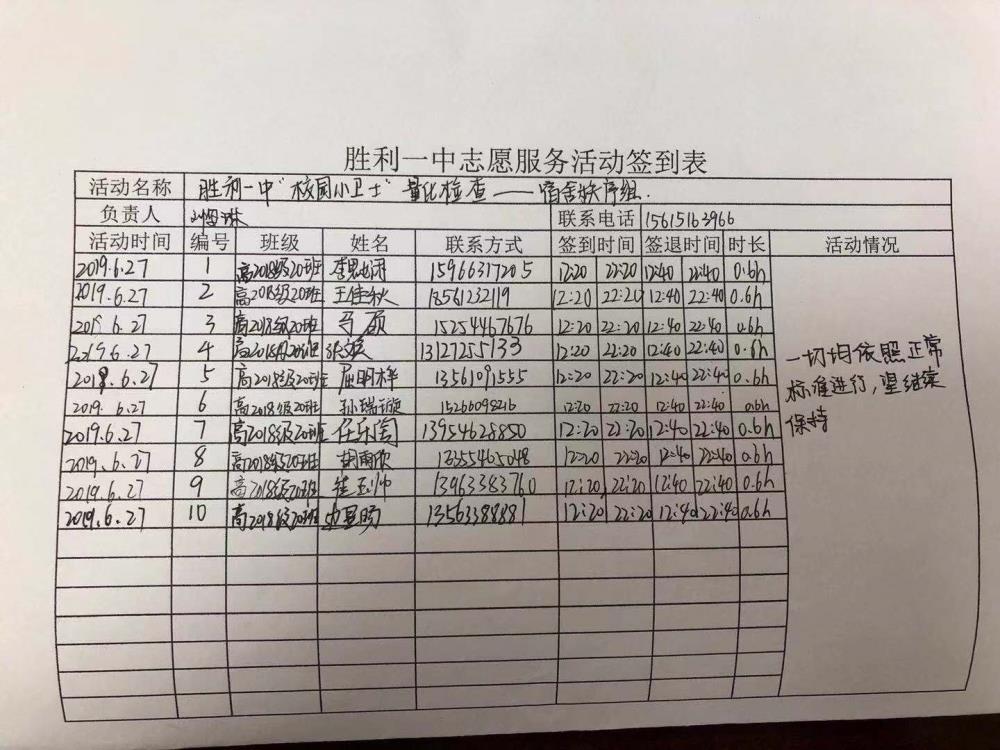 胜利一中志愿服务活动签到表
活动名称 胜利一中"校园小卫士"量化检查——宿舍秩序组.
负责人 联系电话 15615163966
活动时间 编号 班级 姓名 联系方式 签到时间 签退时间 时长 活动情况
2019.6.27 1 高2018级20班 15966317205 12:20 22:20 12:40 22:40 0.6h
2019.6.27 2 高2018级20班 王佳秋 18561232119 12:20 22:20 12:40 22:40 0.6h
2019.6.27 3 高2018级20班 15254467676 12:20 22:20 12:40 22:40 0.6h
2019.6.27 4 高2018级20班 13127255733 12:20 22:20 12:40 22:40 0.6h
2018.6.27 5 高2018级20班 屈明样 13561091555 12:20 22:20 12:40 22:40 0.6h
2019.6.27 6 高2018级20班 孙瑞璇 15266098216 12:20 22:20 12:40 22:40 0.6h
2019.6.27 7 高2018级20班 任乐陶 13954628850 12:20 22:20 12:40 22:40 0.6h
2019.6.27 8 高2018级20班 胡雨欣 13355465048 12:20 22:20 12:40 22:40 0.6h
2019.6.27 9 高2018级20班 崔玉帅 13963383760 12:20 22:20 12:40 22:40 0.6h
2019.6.27 10 高2018级20班 13563388881 12:20 22:20 12:40 22:40 0.6h
一切均依照正常
标准进行,望继续
保持